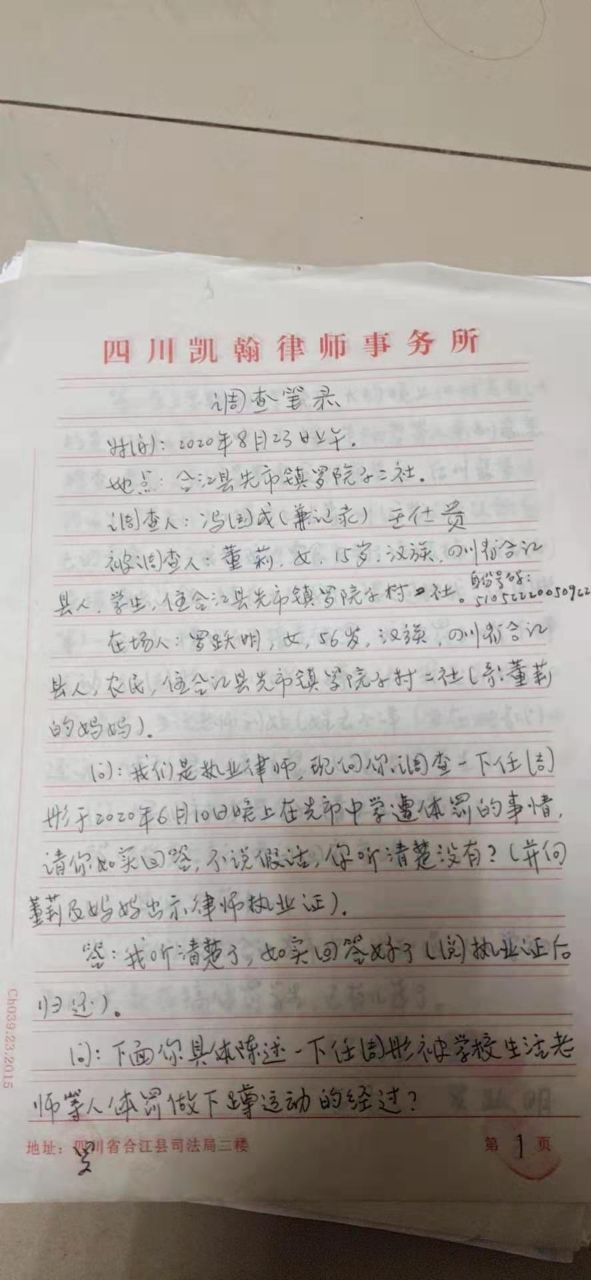 四川凯翰律师事务所
调查笔录
时间：2020年8月23日上午。
地点：合江县先市镇罗院子二社。
调查人：冯国成（兼记录） 王仕贵
被调查人：董莉，女，15岁，汉族，四川省合江
县人，学生，住合江县先市镇罗院子村二社。身份号码：
在场人：罗跃明，女，56岁，汉族，四川省合江
县人，农民，住合江县先市镇罗院子村二社（系董莉
的妈妈）。
问：我们是执业律师，现向你调查一下任周
彤于2020年6月10日晚上在先市中学遭体罚的事情，
请你如实回答，不说假话，你听清楚没有？（并向
董莉及妈妈出示律师执业证）。
答：我听清楚了，如实回答好了（阅执业证后
归还）。
问：下面你具体陈述一下任周彤被学校生活老
师等人体罚做下蹲运动的经过？
地址：四川省合江县司法局三楼
第1页
Ch039.23.2015